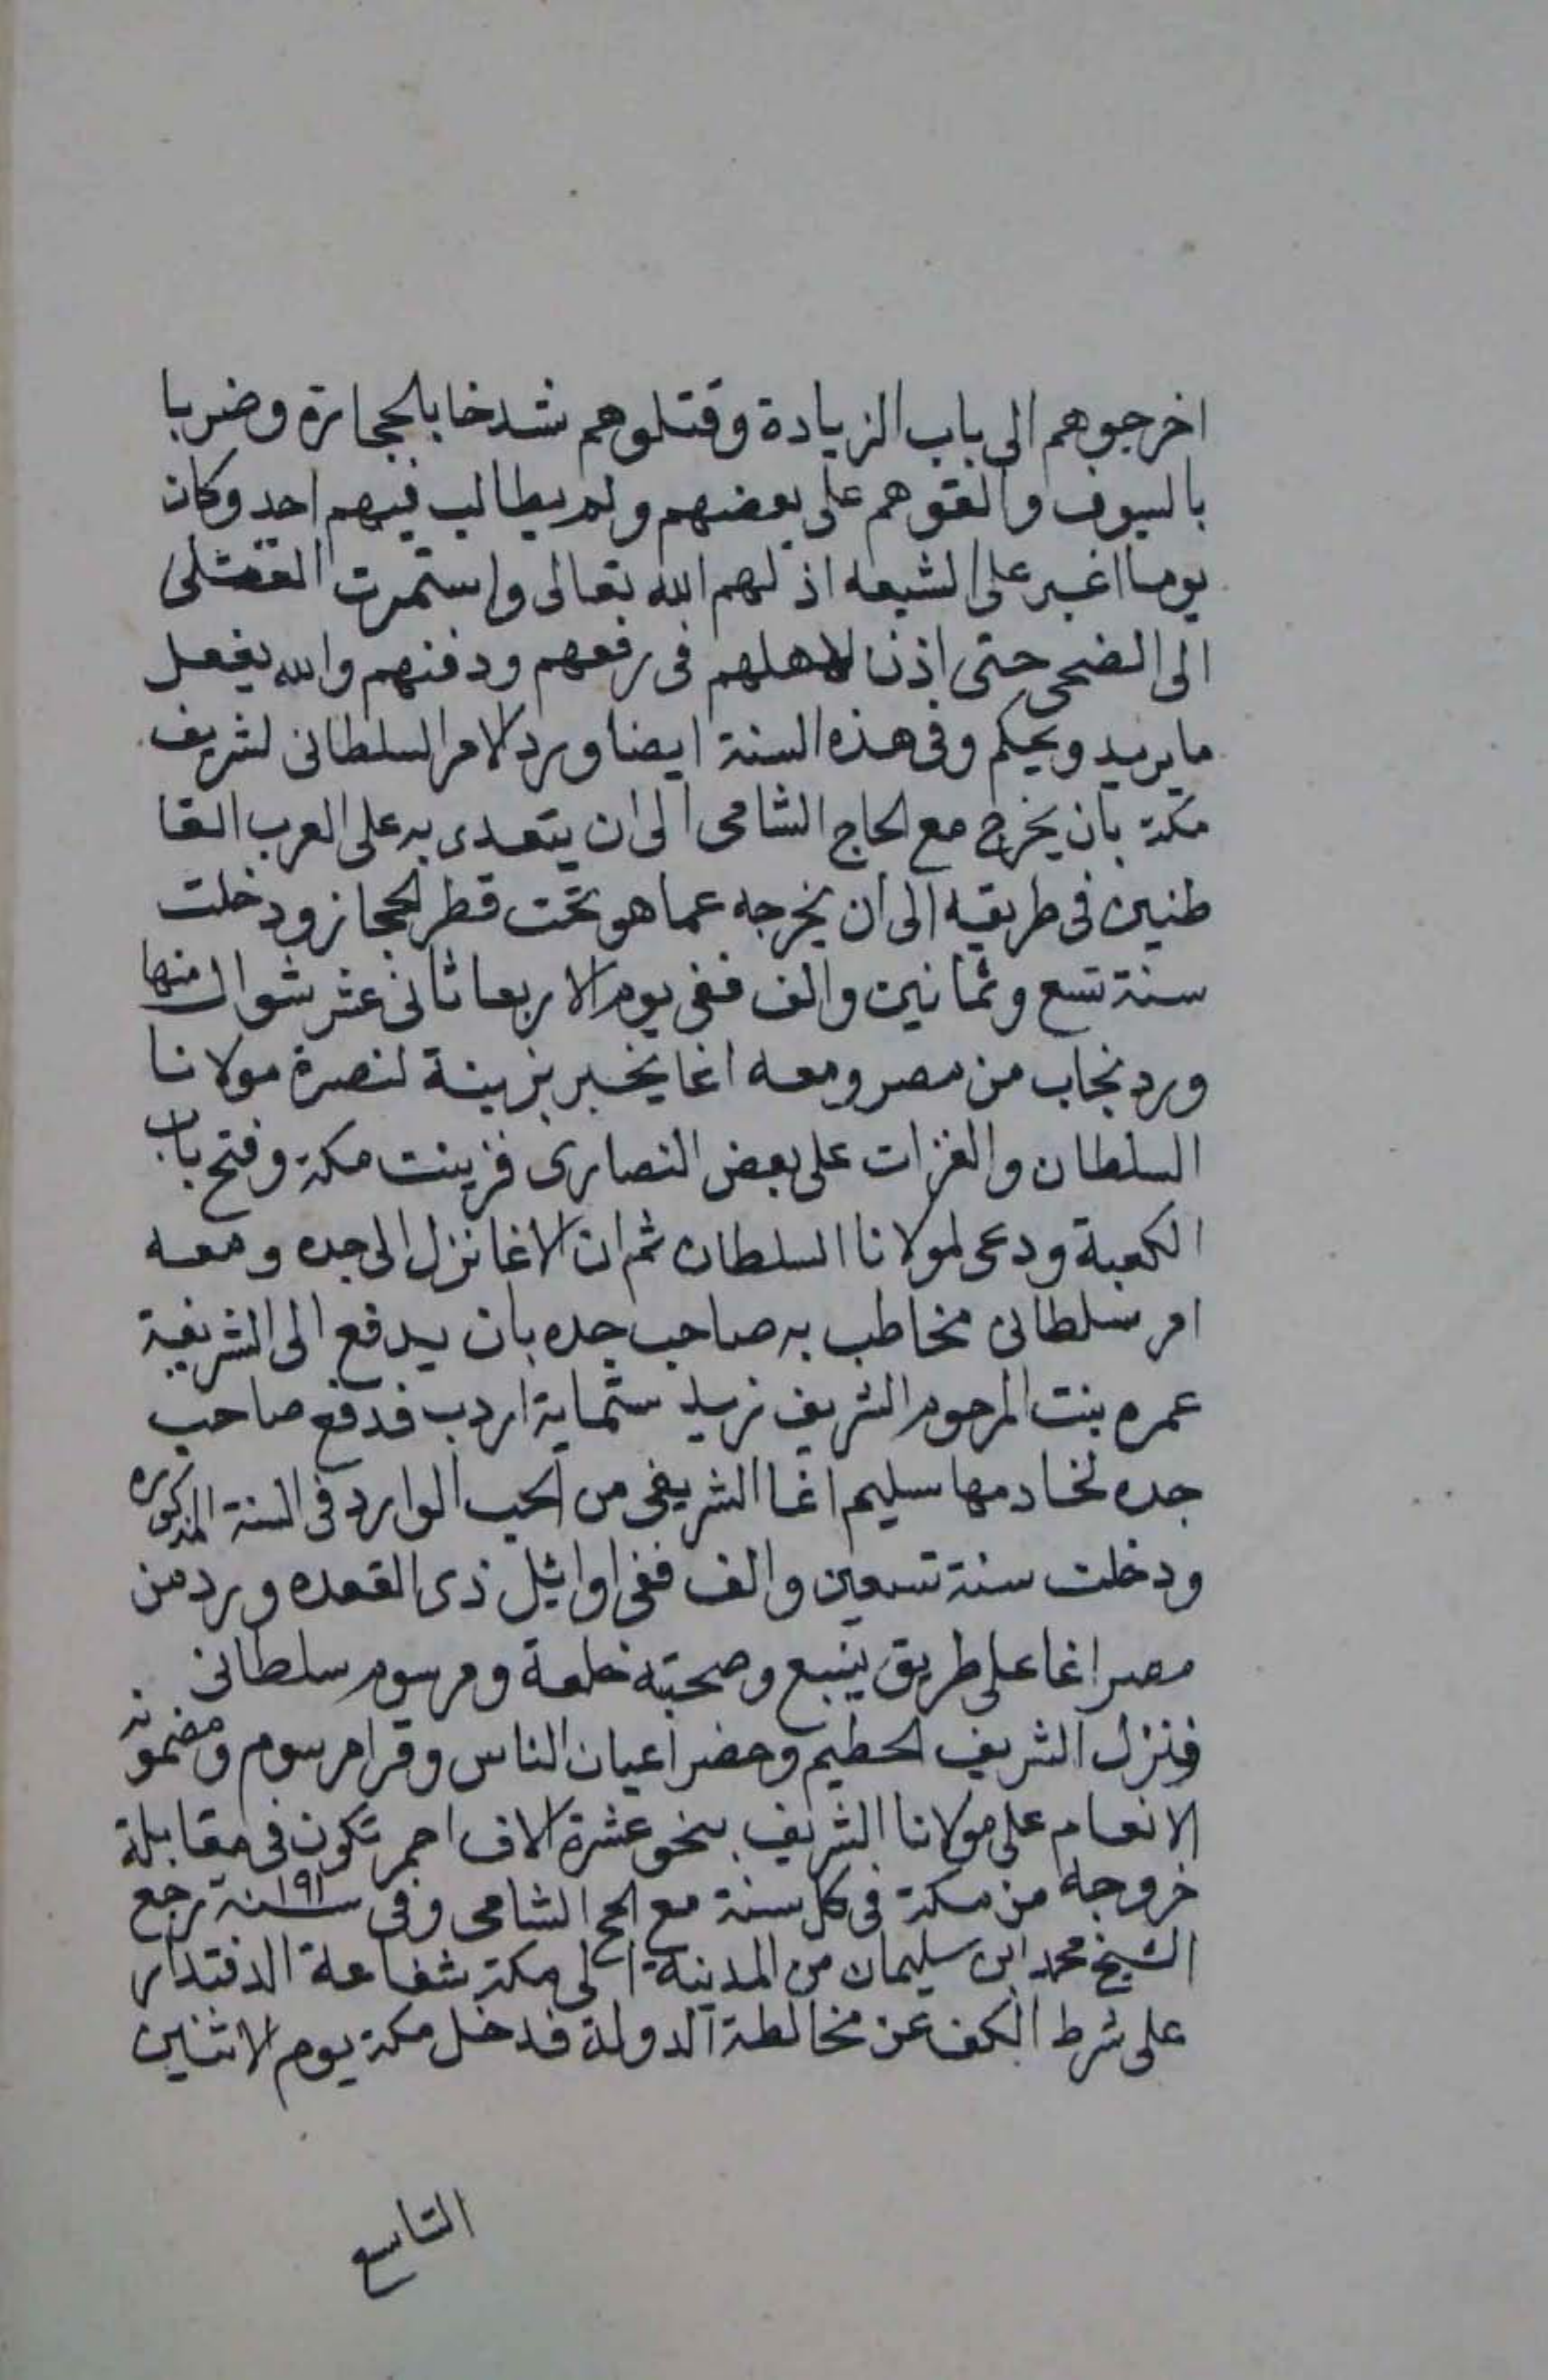 اخرجوهم الى باب الزيادة وقتلوهم شدخا بالحجارة وضربا
بالسيوف والقوهم على بعضهم ولم يطالب فيهم احد وكان
يوما اغبر على الشيعه اذلهم الله تعالى واستمرت القتلى
الى الضحى حتى اذن لاهلهم فى رفعهم ودفنهم والله يفعل
ما يريد ويحكم وفى هذه السنة ايضا ورد الامر السلطانى لشريف
مكة بان يخرج مع الحاج الشامى الى ان يتعدى به على العرب القا
طنين فى طريقه الى ان يخرجه عما هو تحت قطر الحجاز ودخلت
سنة تسع وثمانين والف ففى يوم الاربعا ثانى عشر شوال منها
ورد نجاب من مصر ومعه اغا يخبر بزينة لنصرة مولانا
السلطان والغزات على بعض النصارى فزينت مكة وفتح باب
الكعبة ودعى لمولانا السلطان ثم ان الاغا نزل الى جده ومعه
امر سلطانى مخاطب به صاحب جده بان يدفع الى الشريفة
عمره بنت المرحوم الشريف زيد ستماية اردب فدفع صاحب
جده لخادمها سليم اغا الشريفى من الحب الوارد فى السنة المذكوره
ودخلت سنة تسعين والف ففى اوائيل ذى القعده ورد من
مصر اغا على طريق ينبع وصحبته خلعة ومرسوم سلطانى
فنزل الشريف الحطيم وحضر اعيان الناس وقرا مرسوم ومضمونه
الانعام على مولانا الشريف بنحو عشرة الاف احمر تكون فى مقابلة
خروجه من مكة فى كل سنة مع الحج الشامى وفى سنة ١٩١ رجع
الشيخ محمد ابن سليمان من المدينة الى مكة بشفاعة الدفتدار
على شرط الكف عن مخالطة الدولة فدخل مكة يوم الاثنين
التاسع